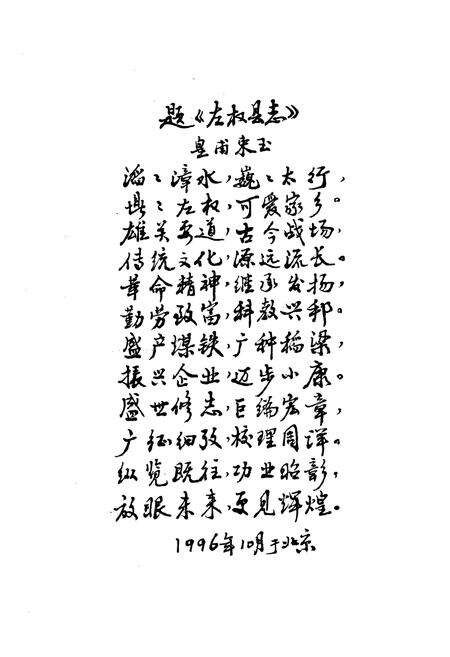 题《左权县志》
皇甫束玉
滔滔漳水，巍巍太行，
堤堤左权，可爱家乡。
雄关要道，古今战场，
传统文化，源远流长。
革命精神，继承发扬，
勤劳致富，科教兴邦。
盛产煤铁，广种稻粱，
振兴企业，迈步小康。
盛世修志，巨编宏章，
广征细孜，校理周详。
纵览既往，功业昭彰，
放眼未来，更见辉煌。
1996年10月于北京